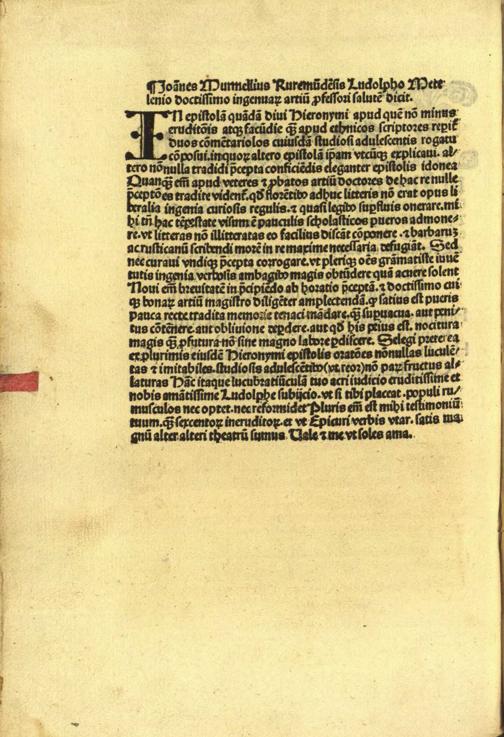 ¶Joānes Murmellius Ruremūdēsis Ludolpho Mete
lenio doctissimo ingenuaꝝ artiū ꝓfessori salutē dicit.
IN epistolā quādā divi Hieronymi apud quē nō minus
eruditōis atqꝫ facūdie ꝗ̄ apud ethnicos scriptores repit̄
duos cōmētariolos cuiusdā studiosi adulescentis rogatu
cōposui. inquoꝝ altero epistolā ip̄am vtcūqꝫ explicaui. al⸗
tero nōnulla tradidi p̄cepta conficiēdis eleganter epistolis idonea
Quanꝗ̄ em̄ apud veteres ⁊ ꝓbatos artiū doctores de hac re nulle
p̄ceptōes tradite vident̄. qd̄ florētib᷒ adhuc litteris nō erat opus li
beralia ingenia curiosis regulis. ⁊ quasi legib᷒ suꝑfluis onerare. mi
hi tn̄ hac tēpestate visum ē pauculis scholasticos pueros admone⸗
re. vt litteras nō illitteratas eo facilius discāt cōponere. ⁊ barbaruꝫ
ac rusticanū scribendi morē in re maxime necessaria. defugiāt. Sed
nec curaui vndiqꝫ p̄cepta corrogare. vt pleriqꝫ oēs grāmatiste iuuē
tutis ingenia verbosis ambagib᷒ magis obtūdere quā acuere solent
Noui em̄ breuitatē in p̄cipiēdo ab horatio p̄ceptā. ⁊ doctissimo cui
qꝫ bonaꝝ artiū magistro diligēter amplectendā. ꝙ satius est pueris
pauca recte tradita memorie tenaci mādare. ꝗ̄ suꝑuacua. aut peni⸗
tus cōtēnere. aut obliuione deꝑdere. aut qd̄ his peius est. nocitura
magis ꝗ̄ ꝓfutura nō sine magno labore ꝑdiscere. Selegi preterea
ex plurimis eiusdē Hieronymi epistolis oratōes nōnullas luculē⸗
tas ⁊ imitabiles. studiosis adulescētib᷒ (vt reor) nō paꝝ fructus al⸗
laturas Hāc itaque lucubratiūculā tuo acri iudicio eruditissime et
nobis amātissime Ludolphe subijcio. vt si tibi placeat. populi ru⸗
musculos nec optet. nec reformidet Pluris em̄ est mihi testimoniū
tuum. ꝗ̄ sexcentoꝝ ineruditoꝝ. et vt Epicuri verbis vtar. satis ma
gnū alter alteri theatrū sumus. Vale ⁊ me vt soles ama.